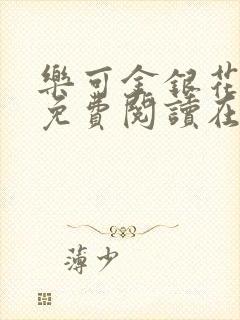 樂可金銀花
免費閱讀在
薄少